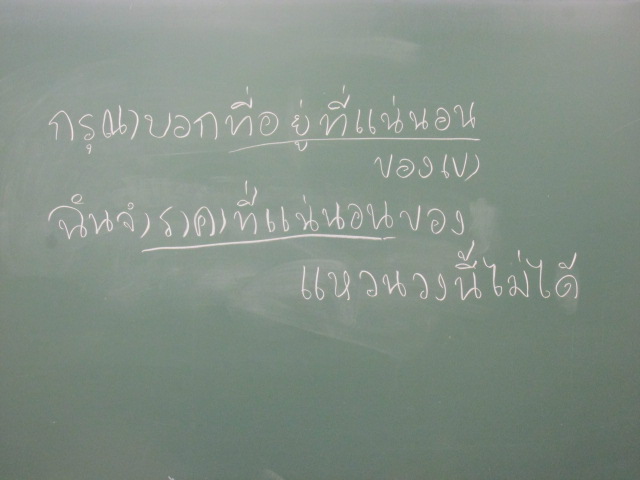 กรุณาบอกที่อยู่ที่แน่นอน
ของเขา
ฉันจำราคาที่แน่นอนของ
แหวนวงนี้ไม่ได้